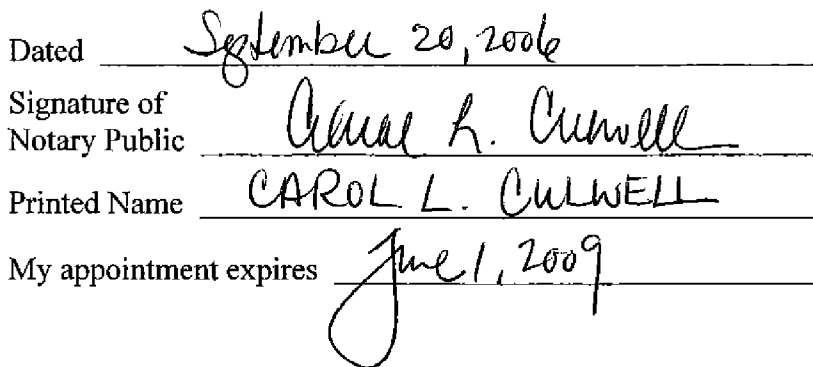 Dated September 20, 2006
Signature of
Notary Public Carol L. Culwell
Printed Name CAROL L. CULWELL
My appointment expires June 1, 2009